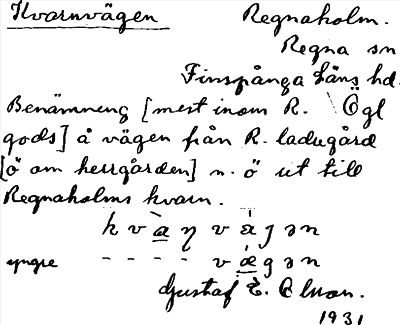 Kvarnvägen Regnaholm.
Regna sn
Finspånga läns hd.
Benämning [mest inom R. Ögl
gods] å vägen från R. ladugård
[ö om herrgården] n. ö ut till
Regnaholms kvarn.
k v a ɳ v ä j ə n
yngre - - - - v æ g ə n
Gustaf E. Olsson.
1931